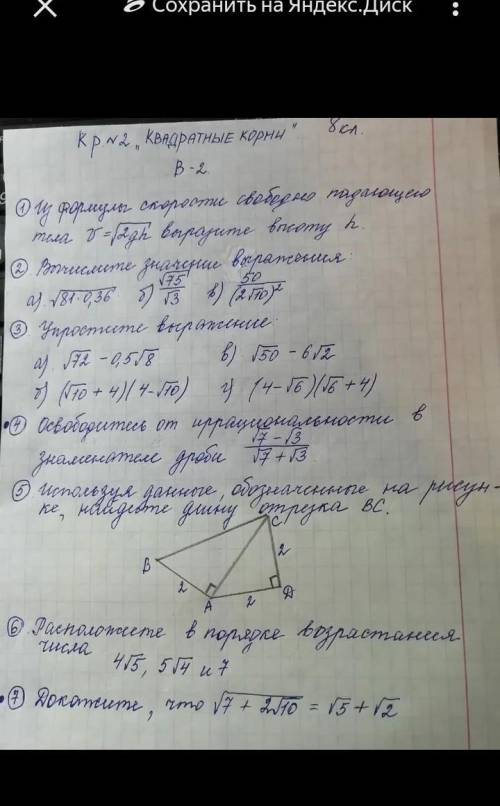 Сохранить на Яндекс.Диск
Кр. №2 „Квадратные корни" 8кл.
В-2.
① Из формулы скорости свободно падающего
тела v=√2gh выразите высоту h.
② Вычислите значение выражения:
а). √81·0,36 б) √75/√3 в) 50/(2√10)²
③ Упростите выражение:
а). √72 - 0,5√8 в) √50 - 6√2
б) (√10 + 4)(4 - √10) г) (4 - √6)(√6 + 4)
④ Освободитесь от иррациональности в
знаменателе дроби √7 - √3/√7 + √3
⑤ Используя данные, обозначенные на рисун-
ке, найдите длину отрезка BC.
C
B
2
2
A
2
D
⑥ Расположите в порядке возрастания
числа
4√5, 5√4 и 7
⑦ Докажите, что √7 + 2√10 = √5 + √2